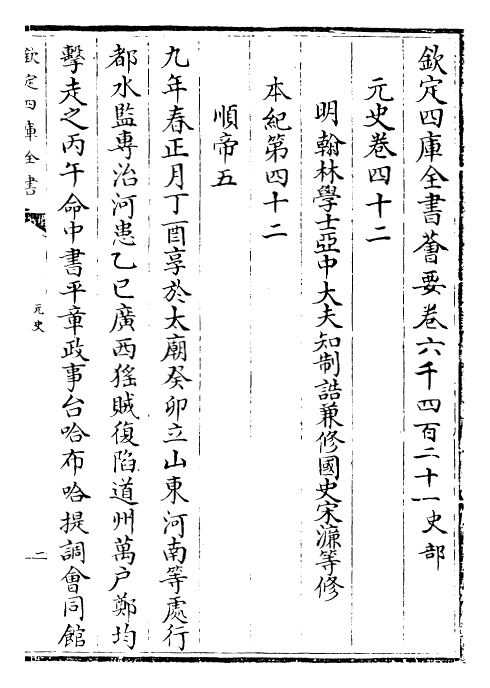 欽定四庫全書薈要卷六千四百二十一史部
元史卷四十二
明翰林學士亞中大夫知制誥兼修國史宋濂等修
本紀第四十二
順帝五
九年春正月丁酉享於太廟癸卯立山東河南等處行
都水監專治河患乙巳廣西猺賊復陷道州萬户鄭均
擊走之丙午命中書平章政事台哈布哈提調會同館
欽定四庫全書
元史
二